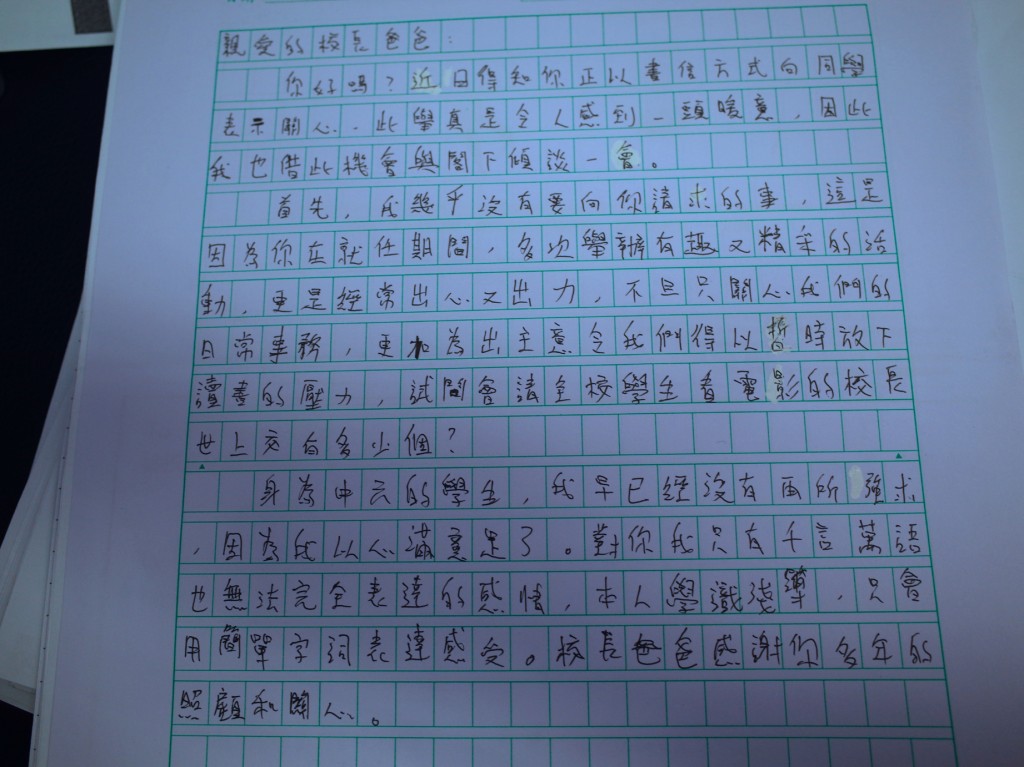 親愛的校長爸爸：
你好嗎？近日得知你正以書信方式向同學
表示關心．此學真是令人感到一頭暖意，因此
我也借此機會與閣下傾談一會。
首先，我幾乎沒有要向你請求的事，這是
因為你在就任期間，多次舉辦有趣又精采的活
動，更是經常出心又出力，不旦只關心我們的
日常事務，更加為出主意令我們得以暫時放下
讀書的壓力，試問會請全校學生看電影的校長
世上究有多少個？
身為中六的學生，我早已經沒有再所強求
，因為我以心滿意足了。對你我只有千言萬語
也無法完全表達的感情，本人學識淺薄，只會
用簡單字詞表達感受。校長爸爸感謝你多年的
照顧和關心。